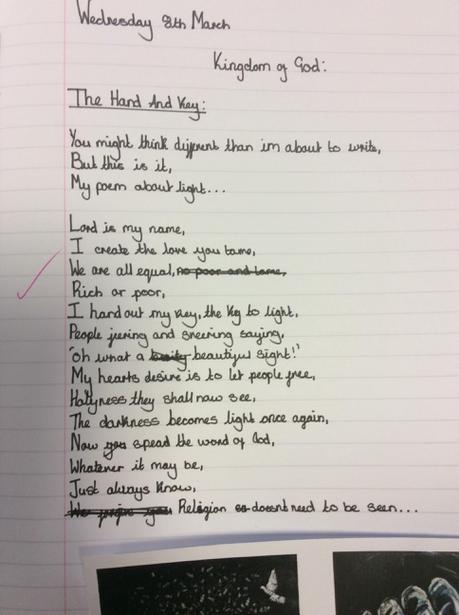 Wednesday 8th March
Kingdom of God:
The Hand And Key:
You might think diffrent than im about to write,
But this is it,
My poem about light...
Lord is my name,
I create the love you tame,
We are all equal, no poor and lame,
Rich or poor,
I hand out my key, the key to light,
People jeering and sneering saying,
'oh what a beautiful sight!'
My hearts desire is to let people free,
Holyness they shall now see,
The darkness becomes light once again,
Now you spead the word of God,
Whatever it may be,
Just always know,
We forgive you Religion doesnt need to be seen...